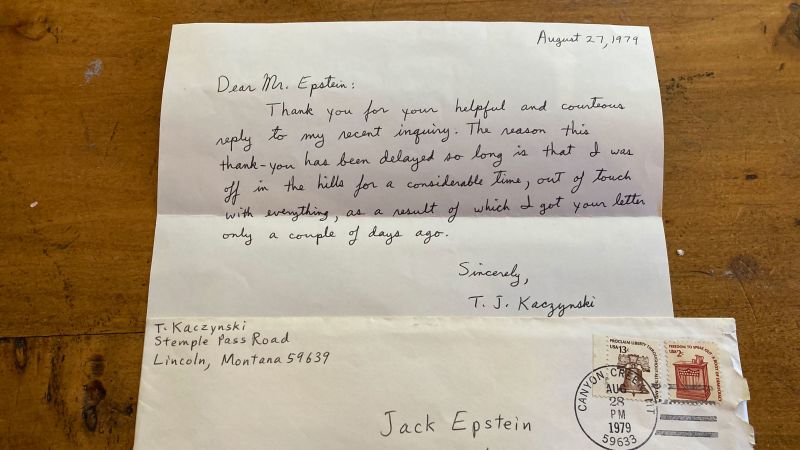 August 27, 1979
Dear Mr. Epstein:
Thank you for your helpful and courteous
reply to my recent inquiry. The reason this
thank-you has been delayed so long is that I was
off in the hills for a considerable time, out of touch
with everything, as a result of which I got your letter
only a couple of days ago.
Sincerely,
T. J. Kaczynski
T. Kaczynski
Stemple Pass Road
Lincoln, Montana 59639
PROCLAIM LIBERTY THROUGHOUT
USA 13c
FREEDOM TO SPEAK OUT
USA 2c
CANYON CREEK, MT
AUG
28
PM
1979
59633
Jack Epstein